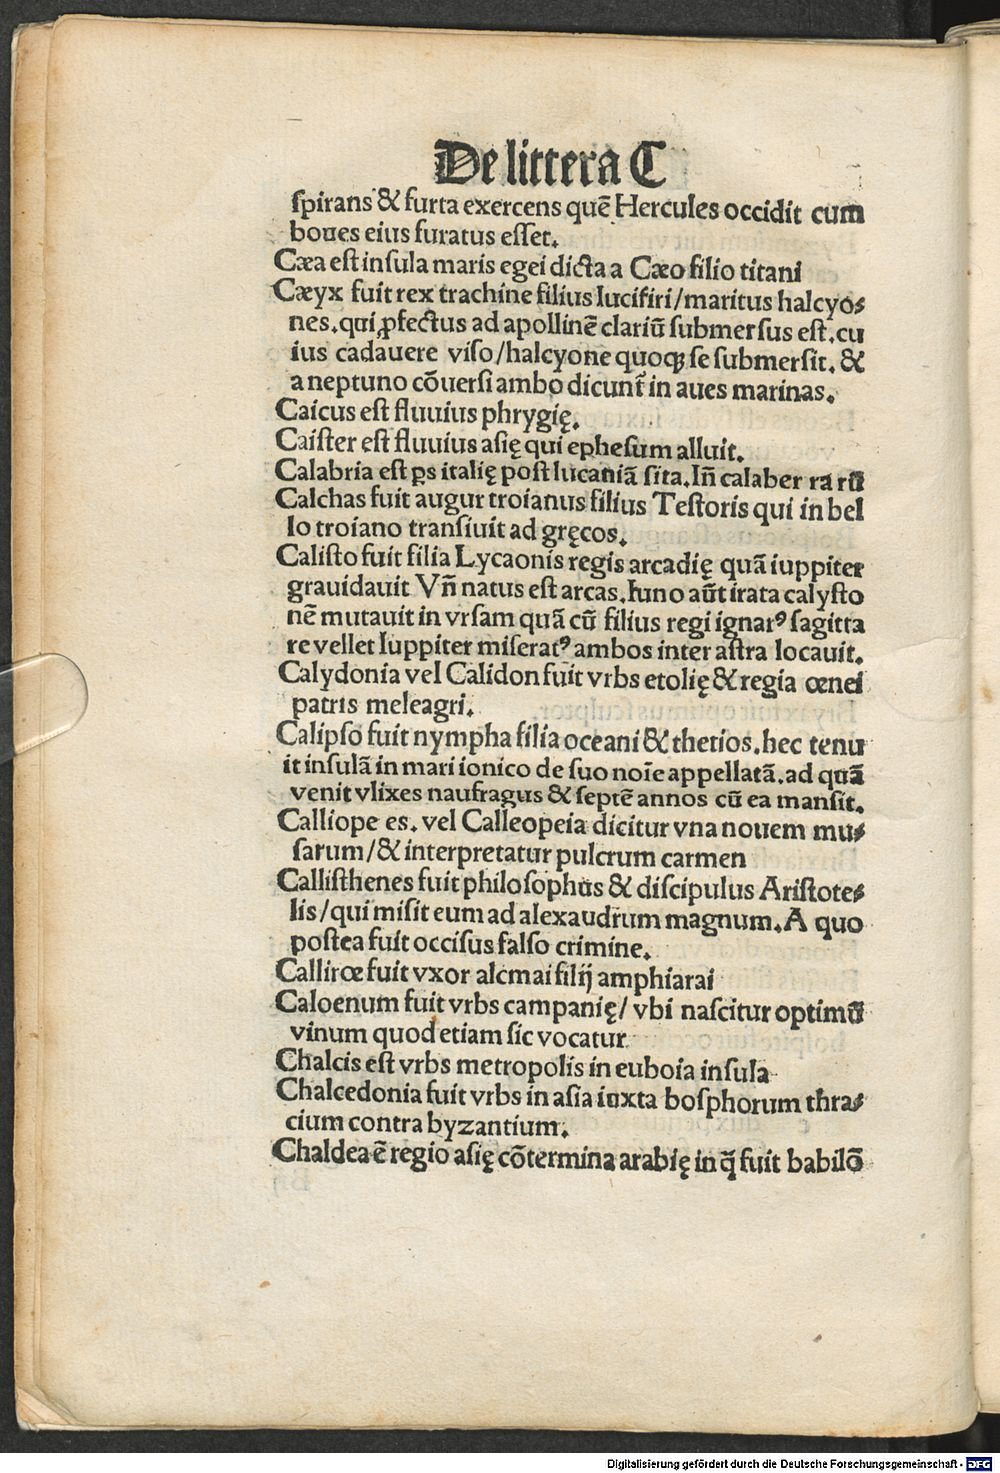 De littera C
ſpirans & furta exercens quē Hercules occidit cum
boues eius furatus eſſet.
Cæa eſt inſula maris egei dicta a Cæo filio titani
Cæyx fuit rex trachine filius lucifiri/maritus halcyo⸗
nes.qui ꝓfectus ad apollinē clariū ſubmerſus eſt.cu
ius cadauere viſo/halcyone quoqꝫ ſe ſubmerſit. &
a neptuno cōuerſi ambo dicunt̄ in aues marinas.
Caicus eſt fluuius phrygię.
Caiſter eſt fluuius aſię qui epheſum alluit.
Calabria eſt ꝑs italię poſt lucaniā ſita.In̄ calaber ra rū
Calchas fuit augur troianus filius Teſtoris qui in bel
lo troiano tranſiuit ad gręcos.
Caliſto fuit filia Lycaonis regis arcadię quā iuppiter
grauidauit Vn̄ natus eſt arcas.Iuno aūt irata calyſto
nē mutauit in vrſam quā cū filius regi ignarꝰ ſagitta
re vellet Iuppiter miſeratꝰ ambos inter aſtra locauit.
Calydonia vel Calidon fuit vrbs etolię & regia œnei
patris meleagri.
Calipſo fuit nympha filia oceani & thetios.hec tenu
it inſulā in mari ionico de ſuo noīe appellatā.ad quā
venit vlixes naufragus & ſeptē annos cū ea manſit.
Calliope es. vel Calleopeia dicitur vna nouem mu⸗
ſarum/& interpretatur pulcrum carmen
Calliſthenes fuit philoſophus & diſcipulus Ariſtote⸗
lis/qui miſit eum ad alexaudrum magnum.A quo
poſtea fuit occiſus falſo crimine.
Callirœ fuit vxor alcmai filij amphiarai
Caloenum fuit vrbs campanię/ vbi naſcitur optimū
vinum quod etiam ſic vocatur
Chalcis eſt vrbs metropolis in euboia inſula
Chalcedonia fuit vrbs in aſia iuxta boſphorum thra⸗
cium contra byzantium.
Chaldea ē regio aſię cōtermina arabię in q̄ fuit babilō
Digitalisierung gefördert durch die Deutsche Forschungsgemeinschaft - DFG